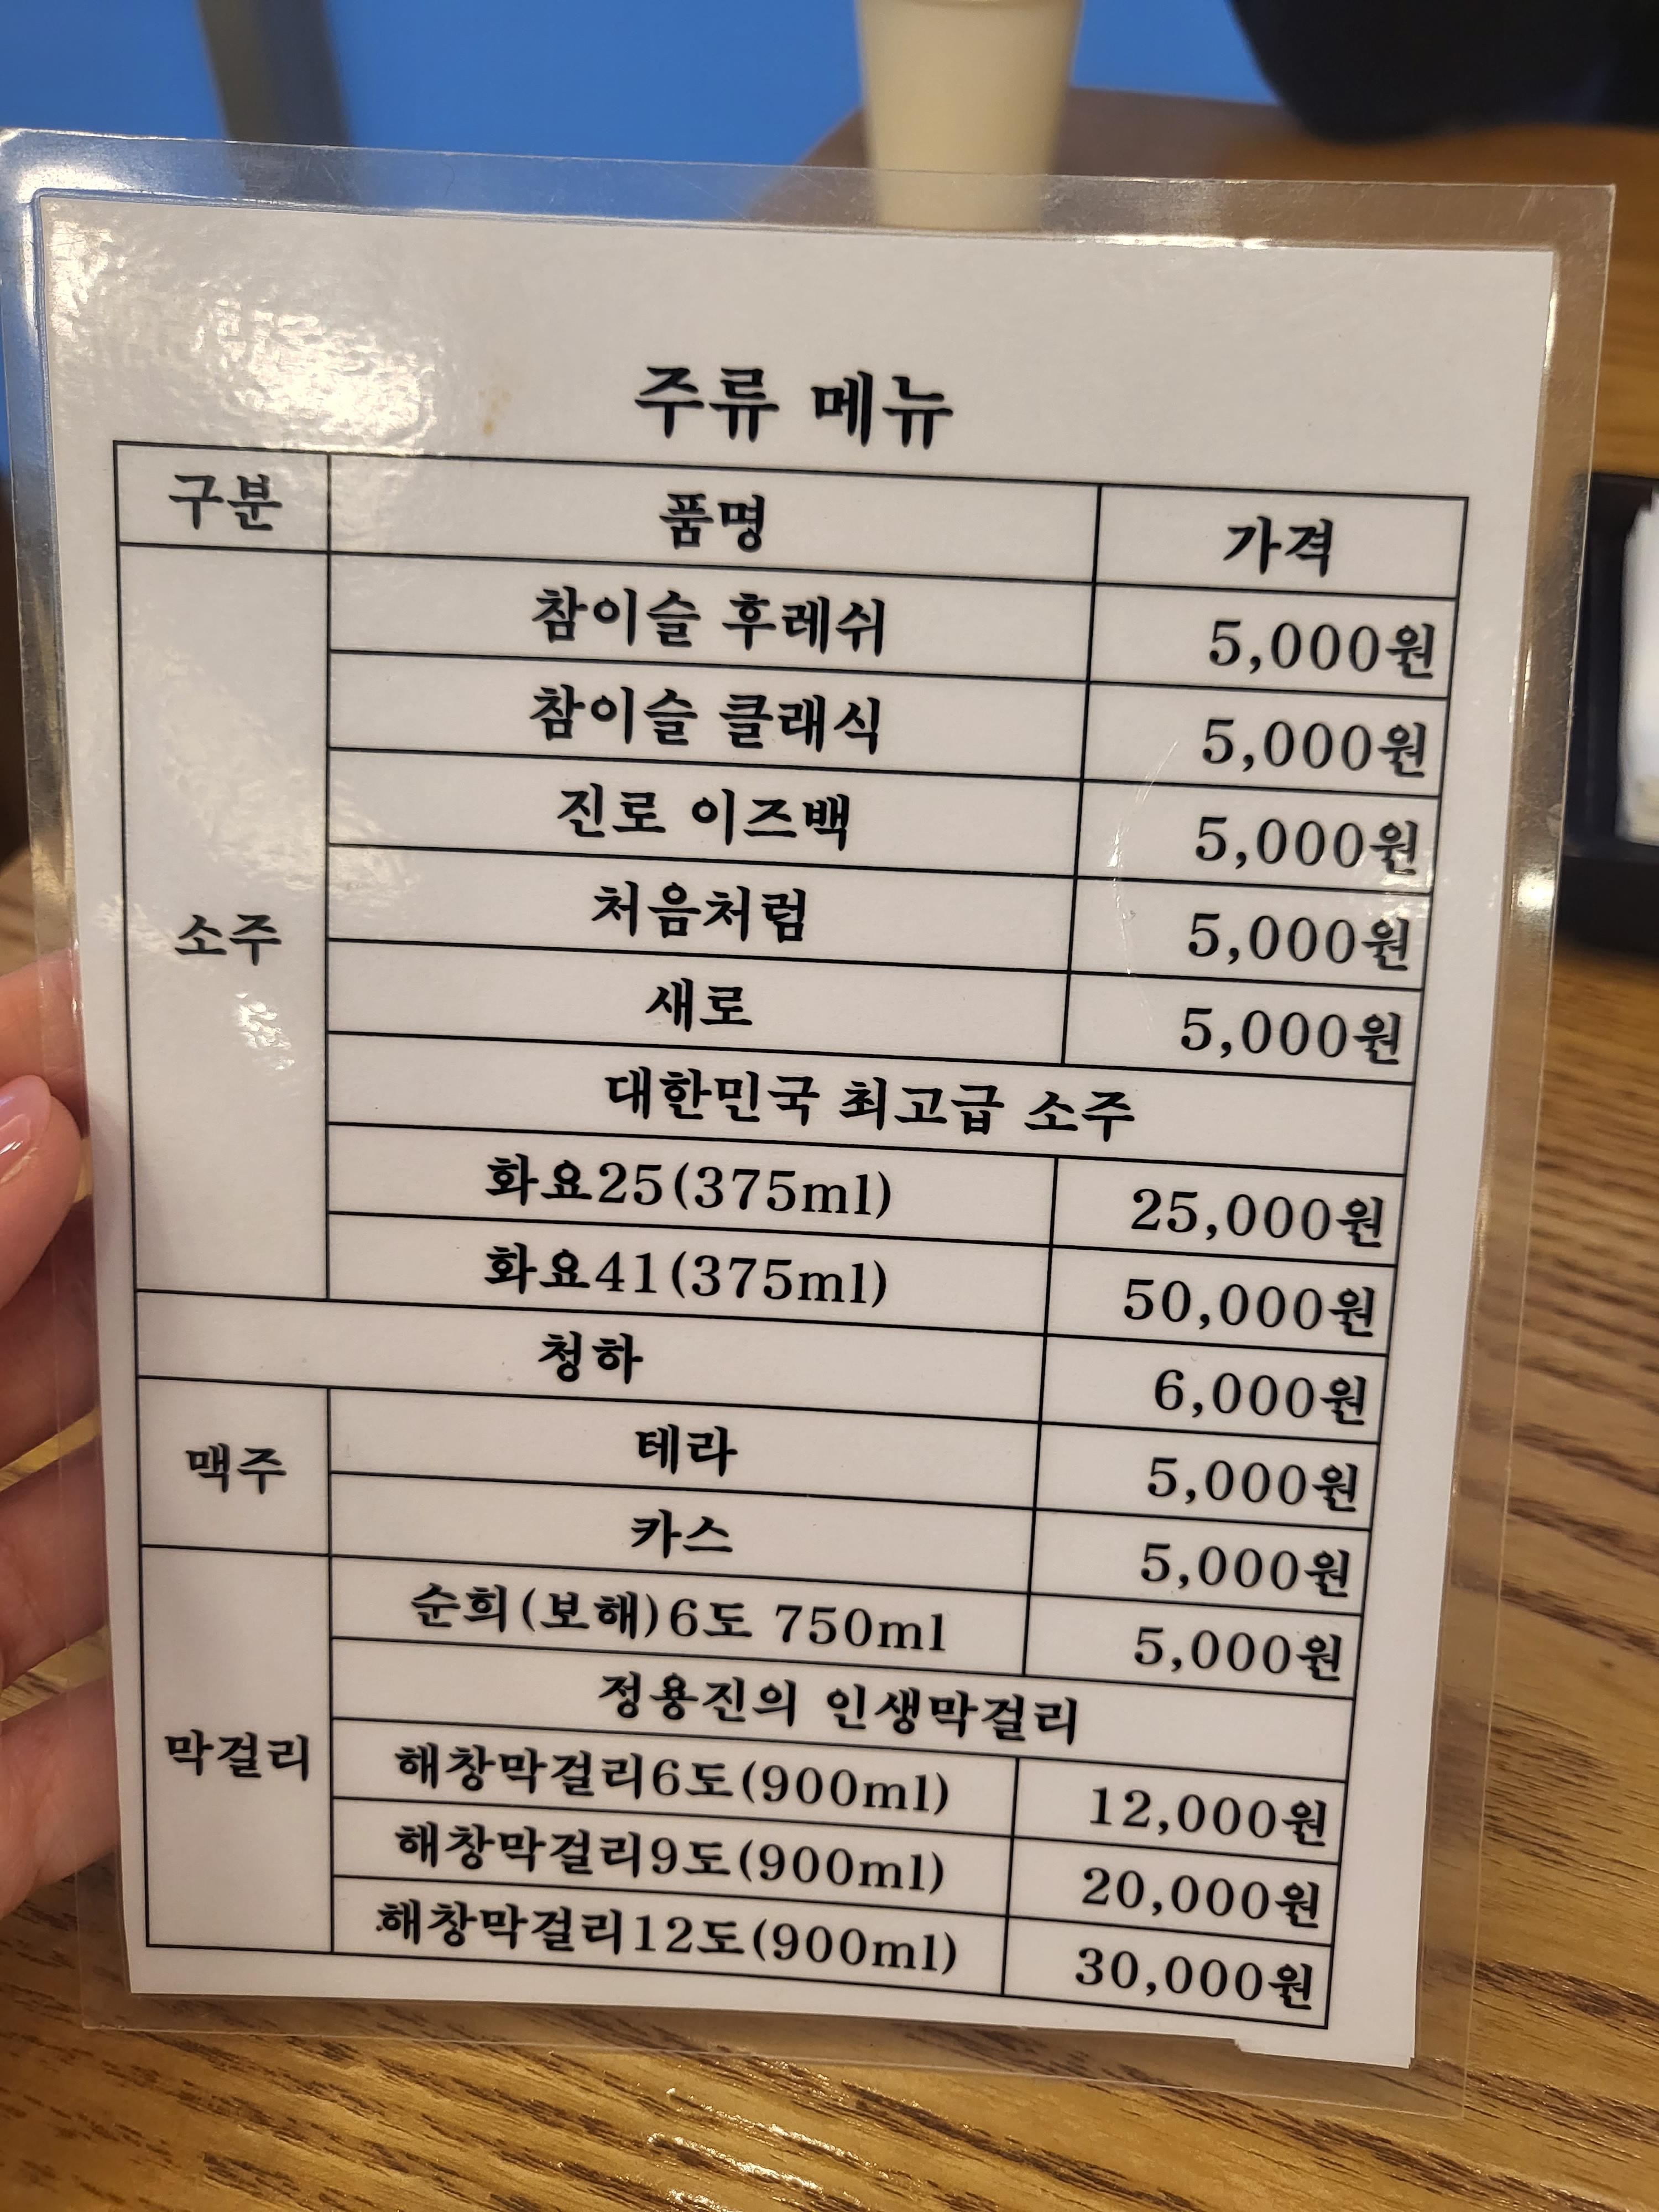 주류 메뉴
구분 품명 가격
소주
참이슬 후레쉬 5,000원
참이슬 클래식 5,000원
진로 이즈백 5,000원
처음처럼 5,000원
새로 5,000원
대한민국 최고급 소주
화요25(375ml) 25,000원
화요41(375ml) 50,000원
청하 6,000원
맥주
테라 5,000원
카스 5,000원
막걸리
순희(보해)6도 750ml 5,000원
정용진의 인생막걸리
해창막걸리6도(900ml) 12,000원
해창막걸리9도(900ml) 20,000원
해창막걸리12도(900ml) 30,000원